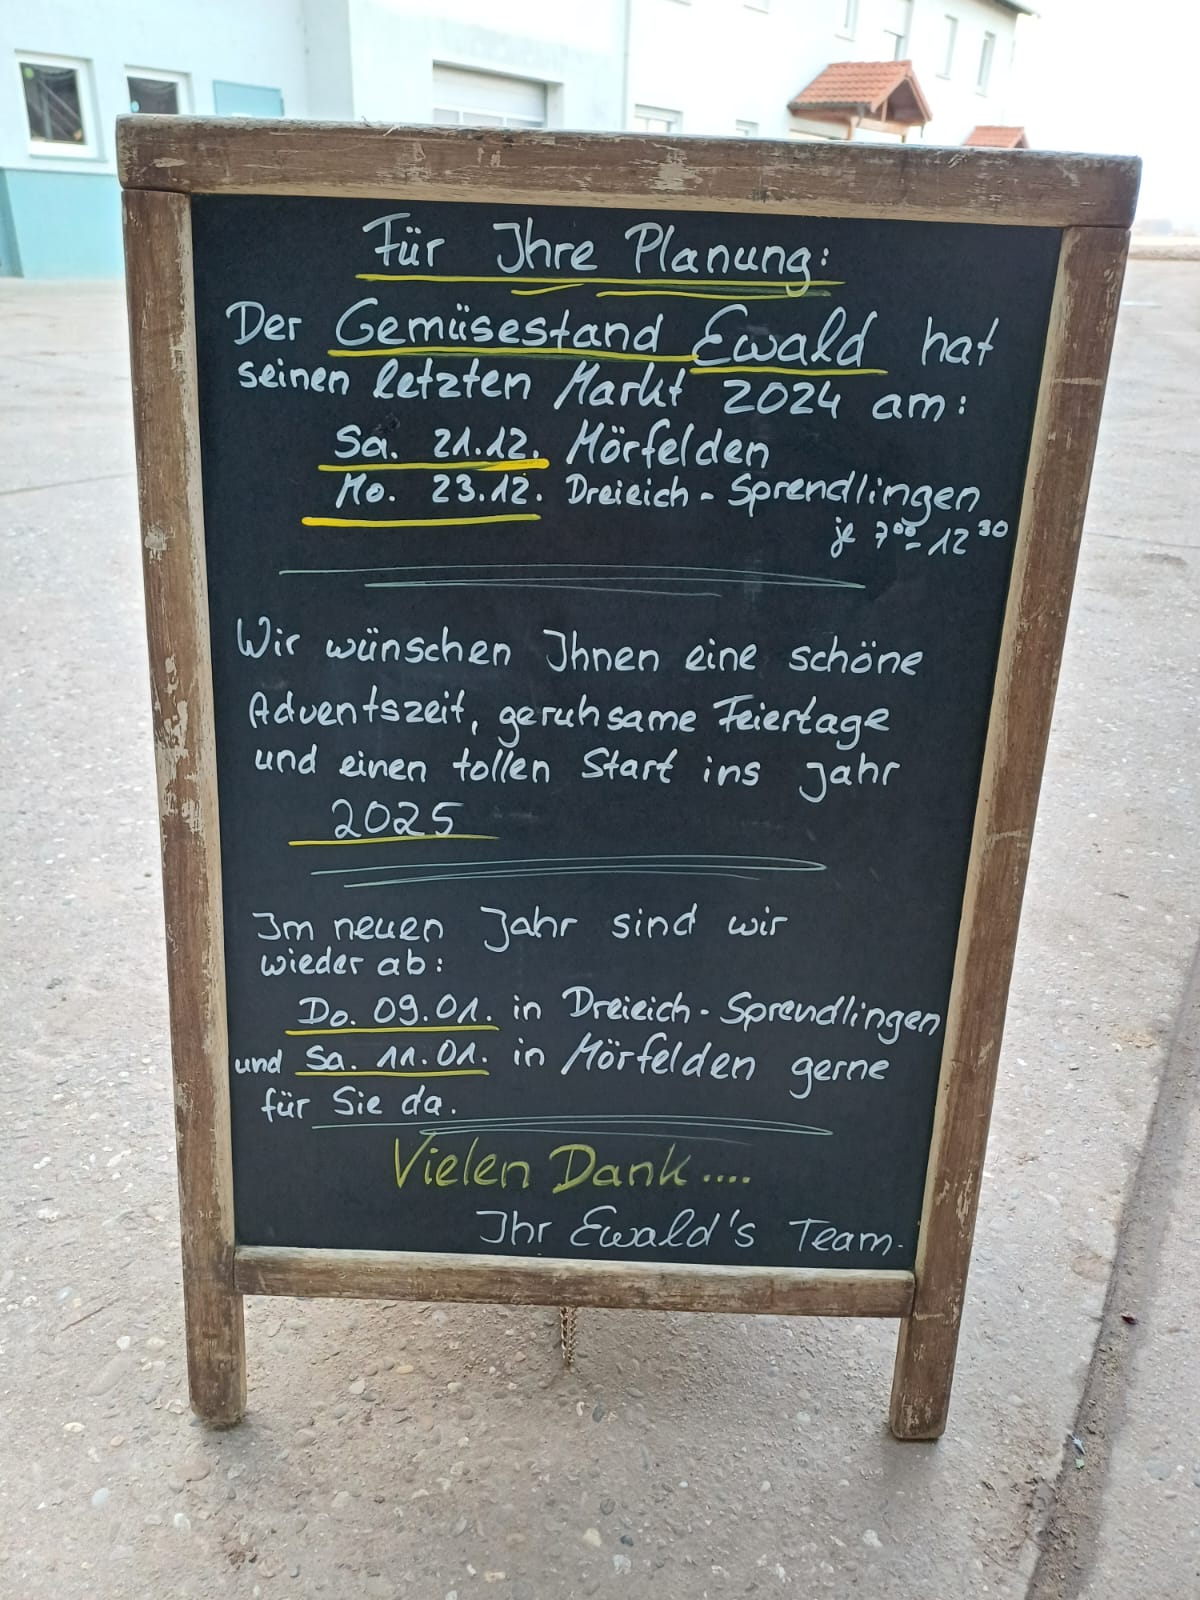 Für Ihre Planung:
Der Gemüsestand Ewald hat
seinen letzten Markt 2024 am:
Sa. 21.12. Mörfelden
Mo. 23.12. Dreieich - Sprendlingen
je 7⁰⁰ - 12³⁰
Wir wünschen Ihnen eine schöne
Adventszeit, geruhsame Feiertage
und einen tollen Start ins Jahr
2025
Im neuen Jahr sind wir
wieder ab:
Do. 09.01. in Dreieich - Sprendlingen
und Sa. 11.01. in Mörfelden gerne
für Sie da.
Vielen Dank ....
Ihr Ewald's Team.